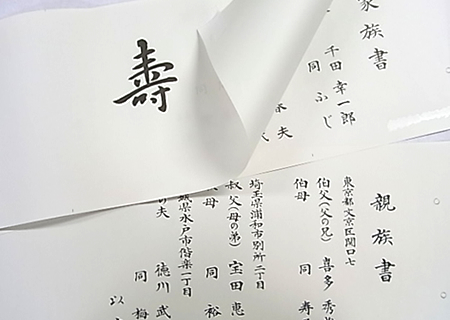 家族書
千田幸一郎
同 ふじ
夫
壽
親族書
東京都文京区関口七
伯父(父の兄) 喜多秀
伯母 同 寿
埼玉県浦和市別所二丁目
叔父(母の弟) 宝田恵
母 同 裕
県水戸市偕楽一丁目
の夫 徳川武
同 梅
以